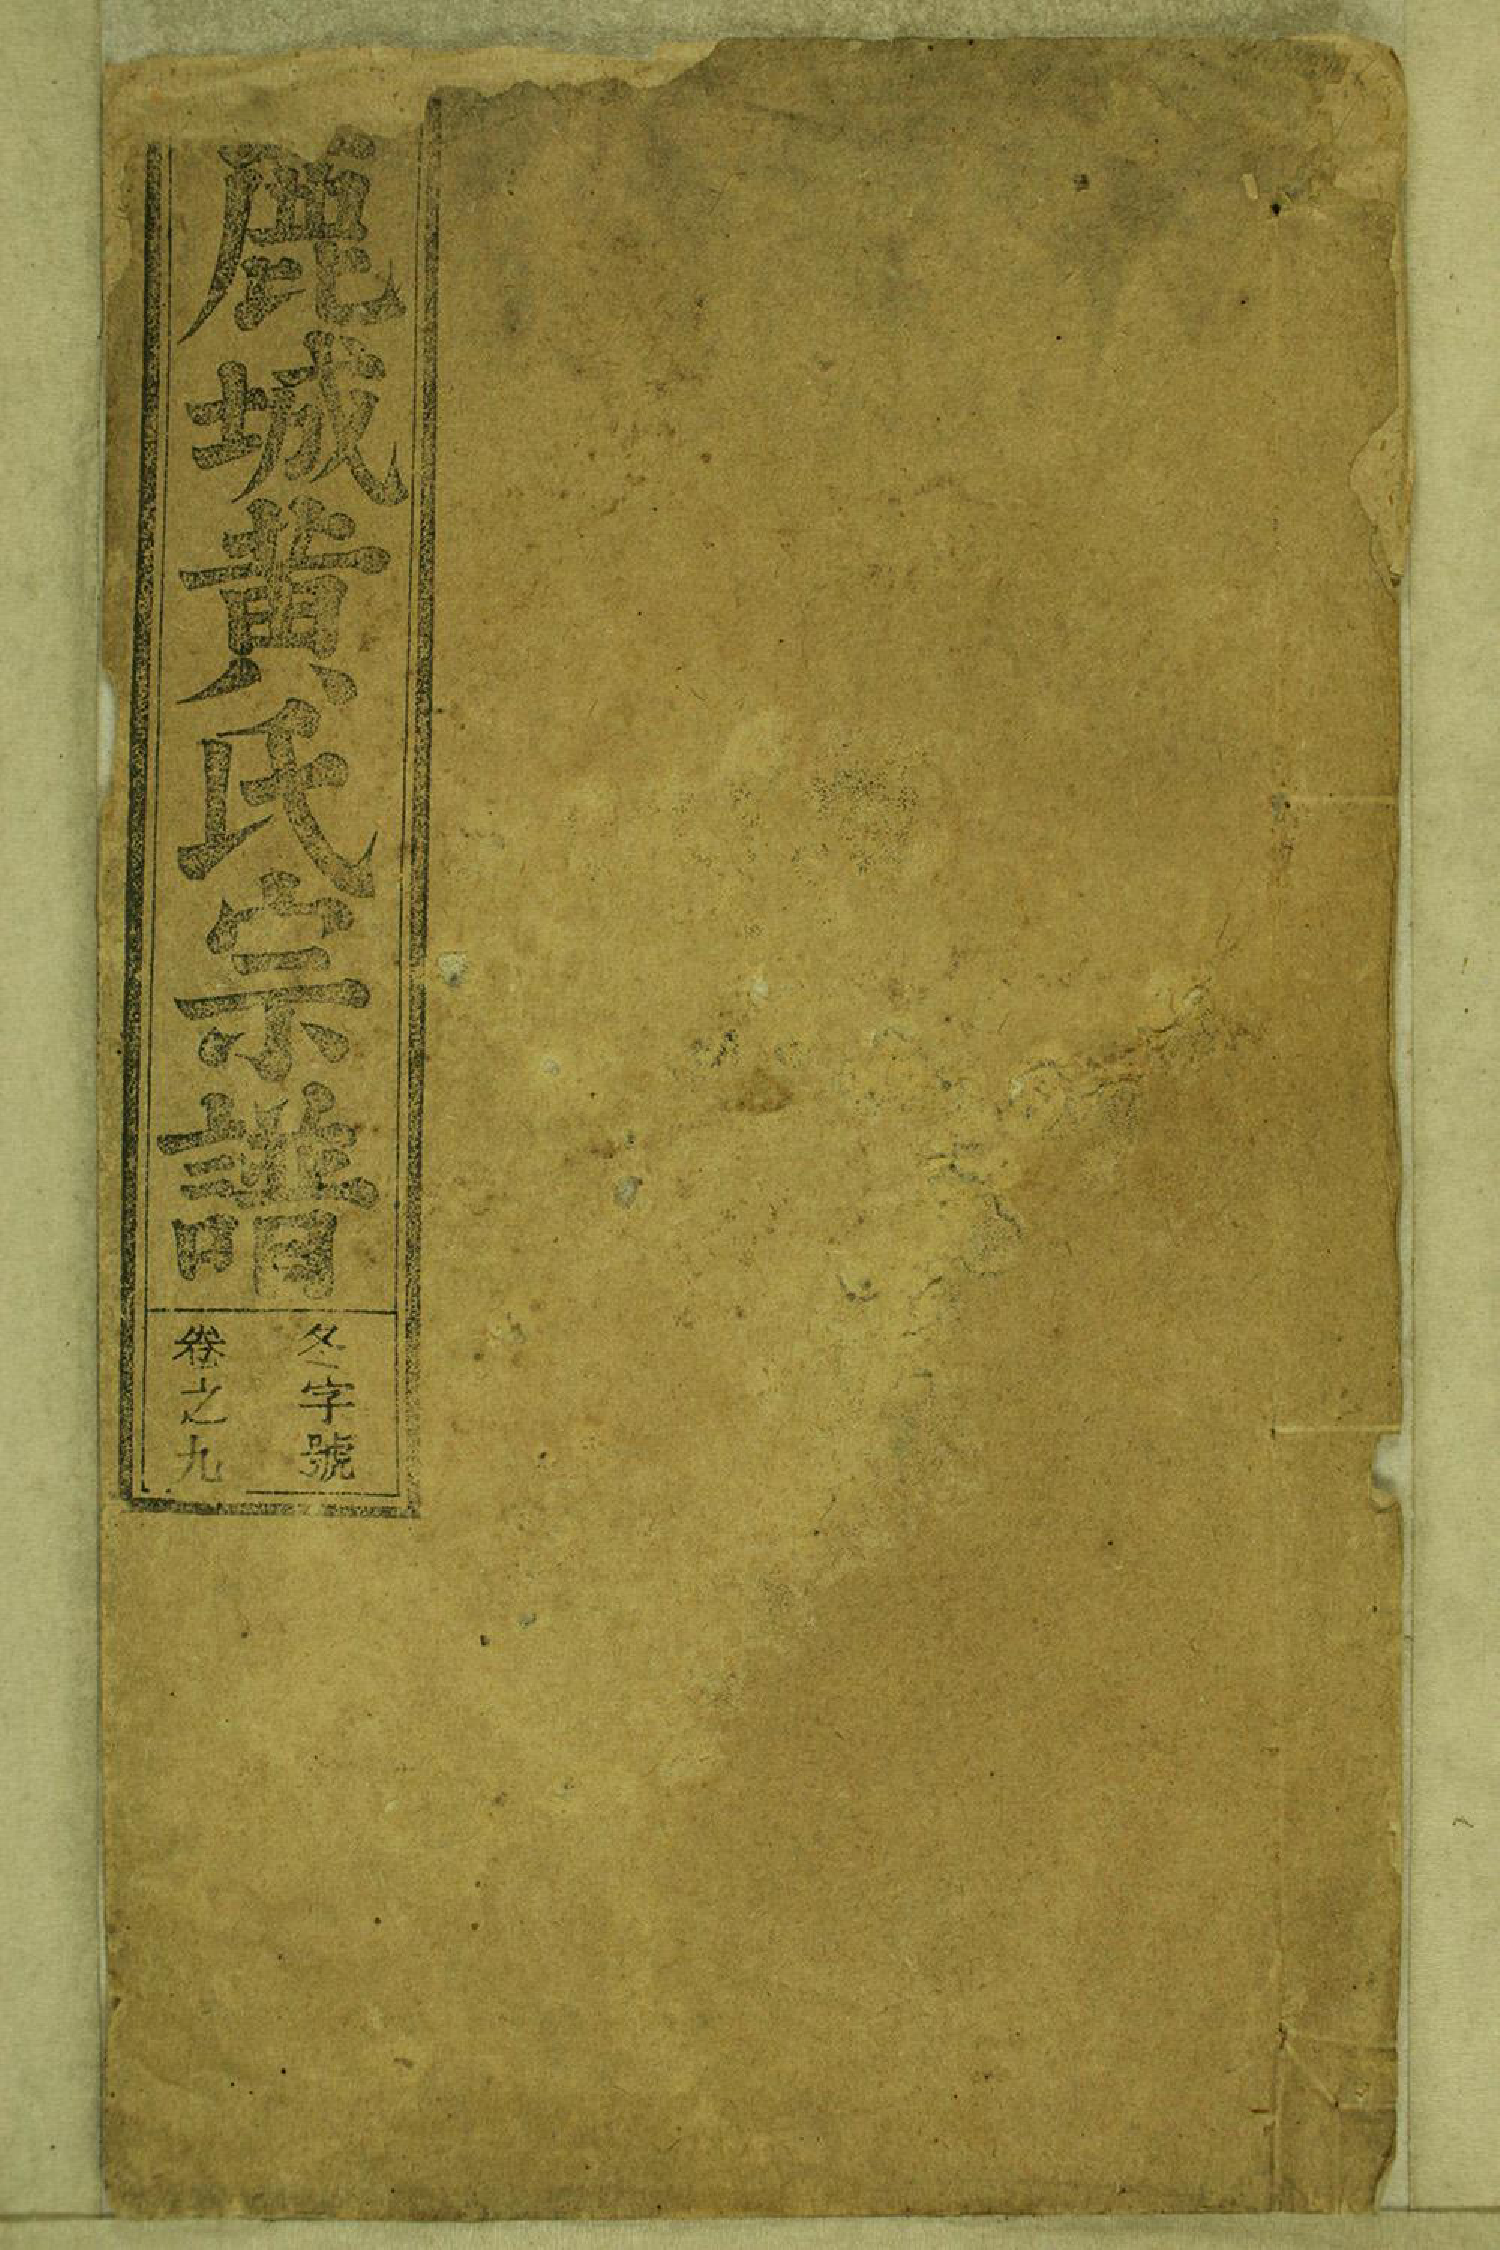 鹿城黃氏宗譜
冬字號
卷之九